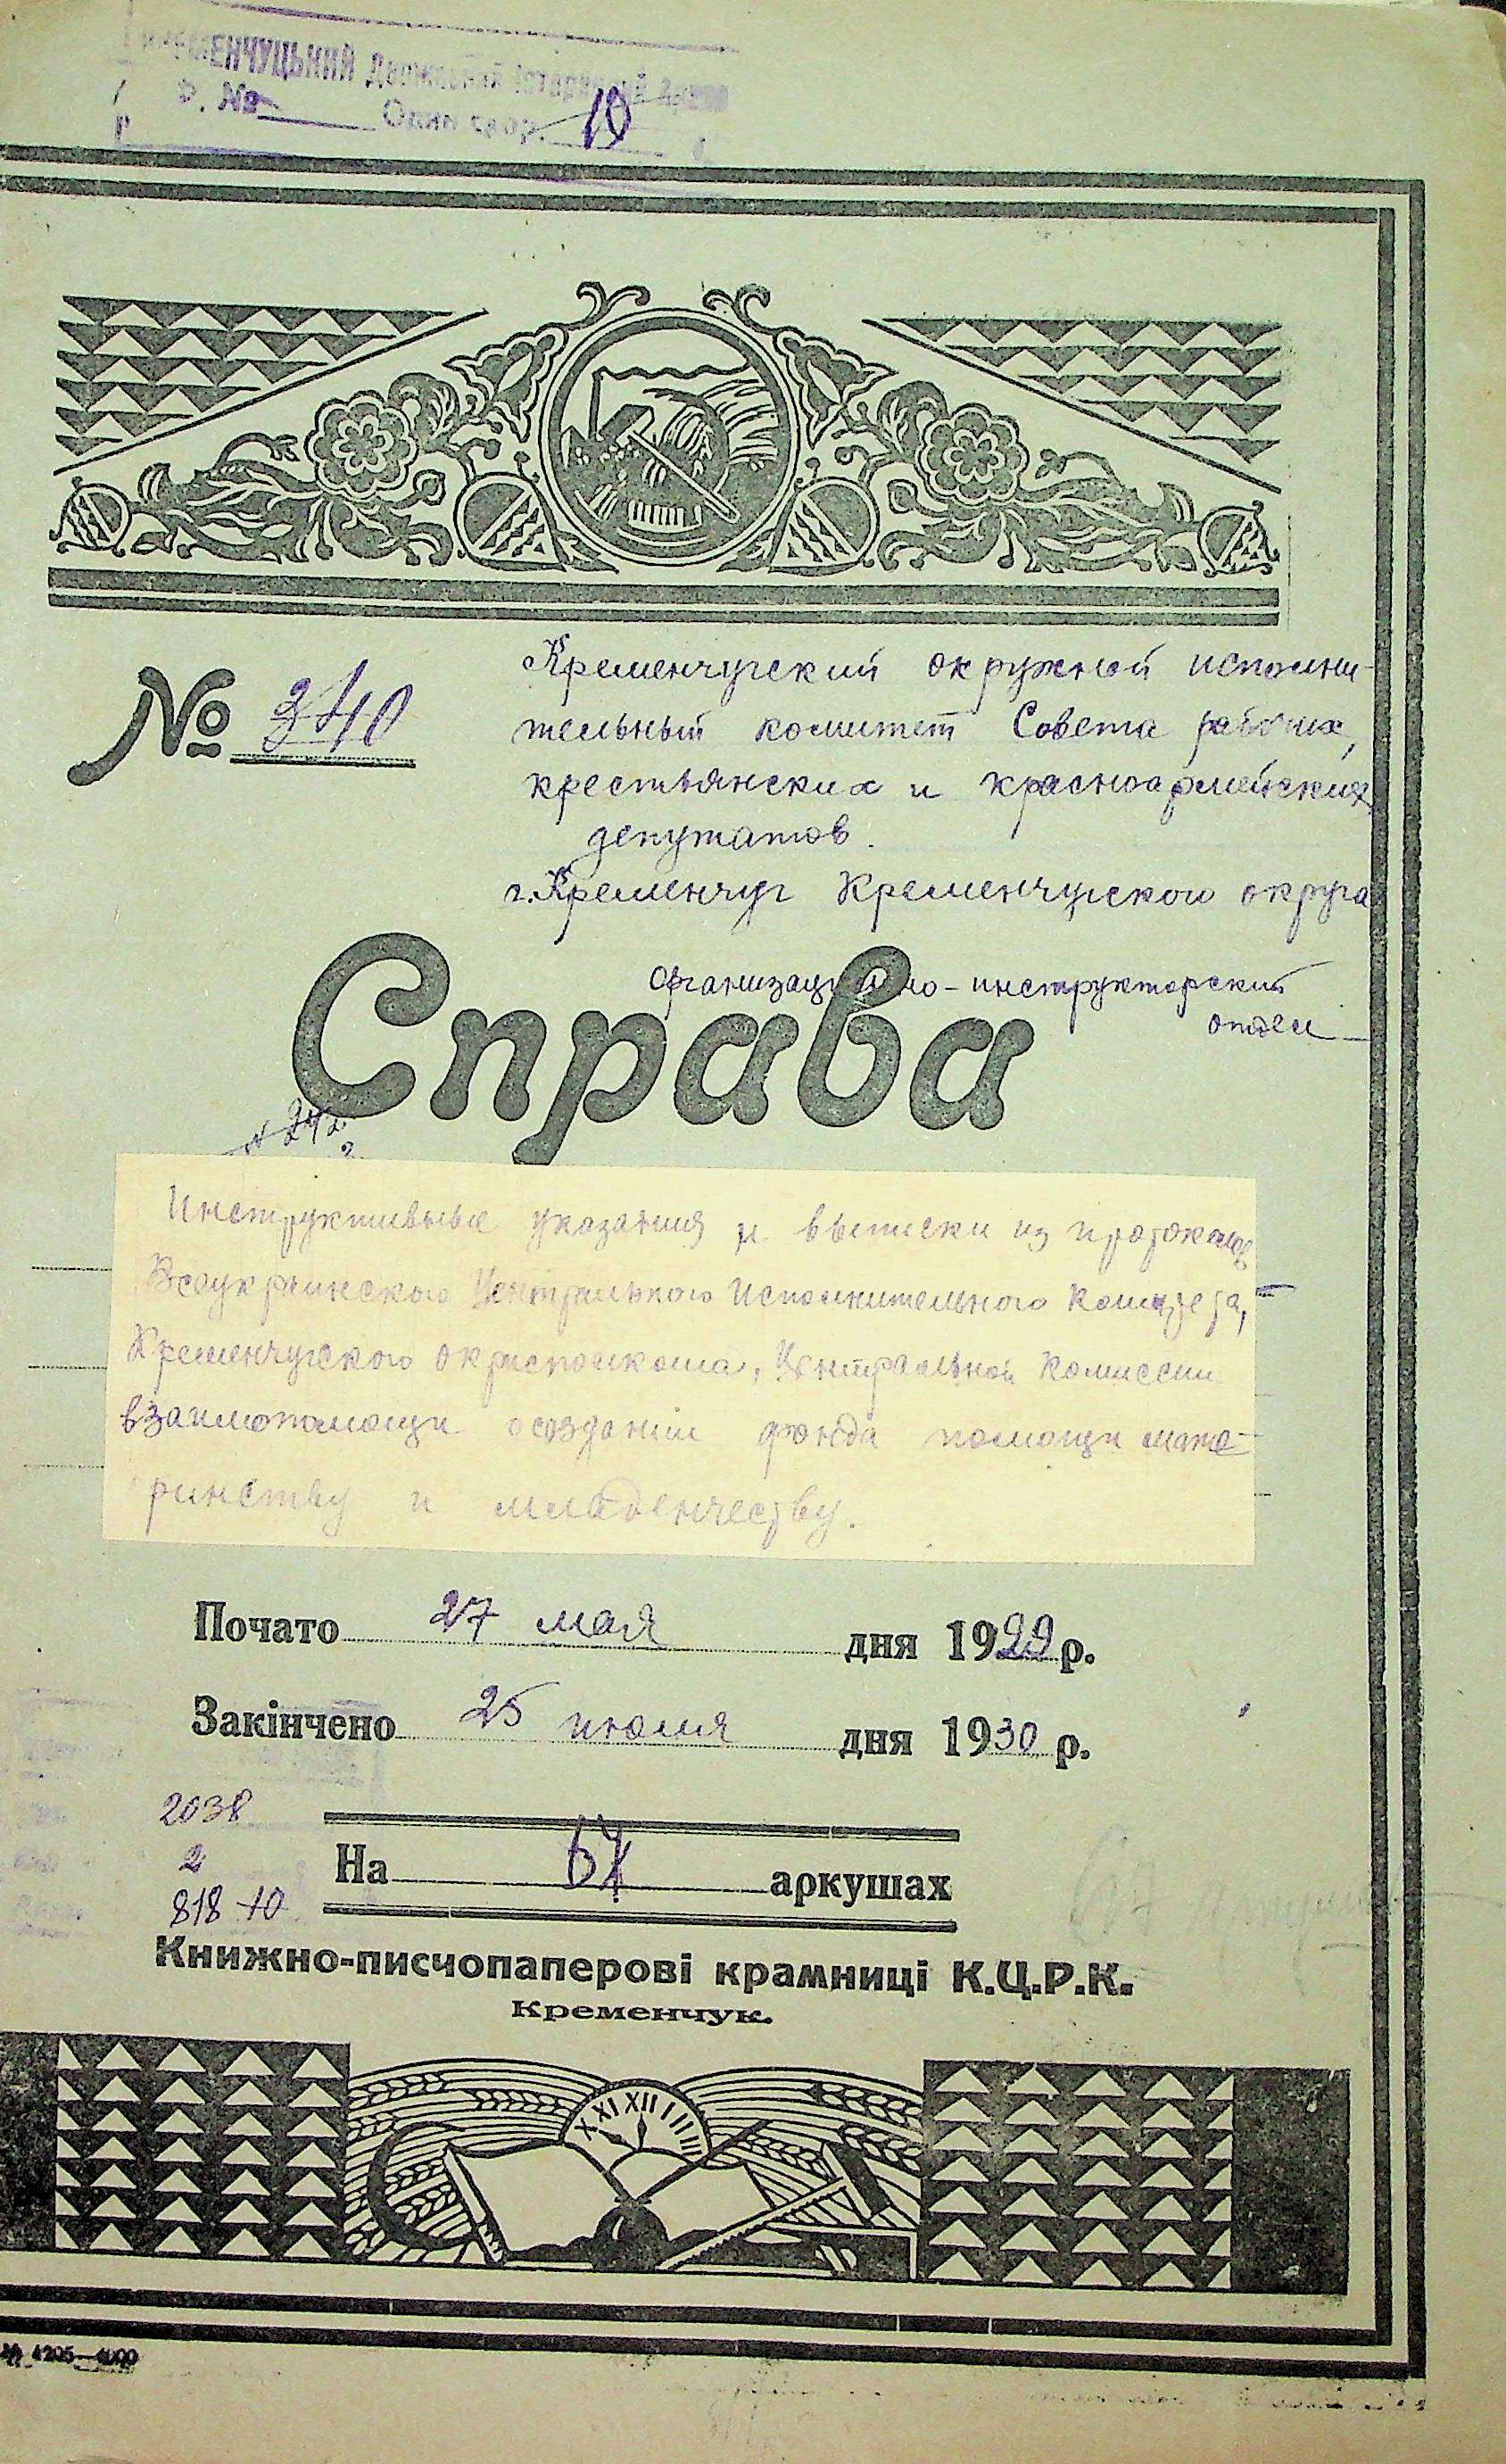 КРЕМЕНЧУЦЬКИЙ Державний Історичний Архів
Ф. №
Один. схор. 10
Кременчугский окружной исполни-
тельный комитет Совета рабочих,
№ 340
крестьянских и красноармейских
депутатов.
г. Кременчуг Кременчугского округа
Организационно-инструкторский
отдел
Справа
№ 242
Инструктивные указания и выписки из протоколов
Всеукраинского Центрального Исполнительного Комитета,
Кременчугского окрисполкома, Центральной Комиссии
взаимопомощи о создании фонда помощи мате-
ринству и младенчеству.
Почато 27 мая дня 1929 р.
Закінчено 25 июля дня 1930 р.
2038
2
На 67 аркушах
818 10
Книжно-писчопаперові крамниці К.Ц.Р.К.
Кременчук.
X XI XII I II III
№ 4205—4000